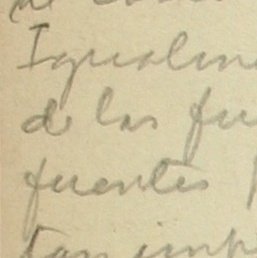 de
Igualm
de las fu
fuentes
tan imp